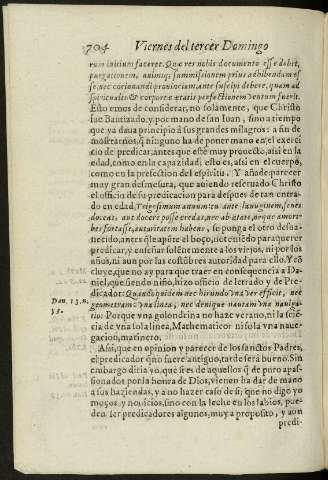 704 Viernes del tercer Domingo
rum initium faceret. Quæ res nobis documento esse debet,
purgationem, animiq; summissionem prius adhibendam es
se, nec corionandi prouinciam, ante suscipi debere, quam ad
spiritualis & corporeæ ætatis perfectionem ventum fuerit.
Esto emos de considerar, no solamente, que Christo
fue Bautizado, y por mano de san Iuan, sino a tiempo
que ya daua principio â sus grandes milagros: a fin de
mostrarnos, q̃ ninguno ha de poner mano en el exerci
cio de predicar, antes que estè muy prouecto, asi en la
edad, como en la capazidad; esto es, asi en el cuerpo,
como en la prefection del espiritu. Y añade: parecer
muy gran desmesura, que auiendo resseruado Christo
el officio de su predicacion para despues de tan entra-
do en edad, Trigesimum annum tu ante lanuginem, senes
doceas: aut docere posse credas, nec ab ætate, neque mori-
bus fortasse, autoritatem habens, se ponga el otro desua-
necido, antes q̃ le apũte el boço, ro teniẽdo para querer
predicar, y enseñar solẽnemente a los viejos, ni por los
años, ni aun por las costũbres autoridad para ello. Y cõ
cluye, que no ay para que traer en consequencia a Da-
niel, que siendo niño, hizo officio de letrado y de Pre-
dicador: Quandoquidem nec hirundo vna ver efficit, nec
geometram vna linea, nec denique nautam vna nauiga-
tio: Porque vna golondrina no haze verano, ni la sciẽ-
cia de vna sola linea, Mathematico: ni sola vna naue-
gacion, marinero.
Dan. 13. n.
Assi, que en opinion y parecer de los sanctos Padres,
el predicador q̃ no fuere antiguo, tarde serà bueno. Sin
embargo diria yo, que si es de aquellos q̃ de puro apas-
sionados por la honra de Dios, vienen ha dar de mano
a sus haziendas, y a no hazer caso de si; que no digo yo
moços, y nouicios, sino con la leche en los labios, pue-
den ser predicadores algunos, muy a proposito, y aun
predi-